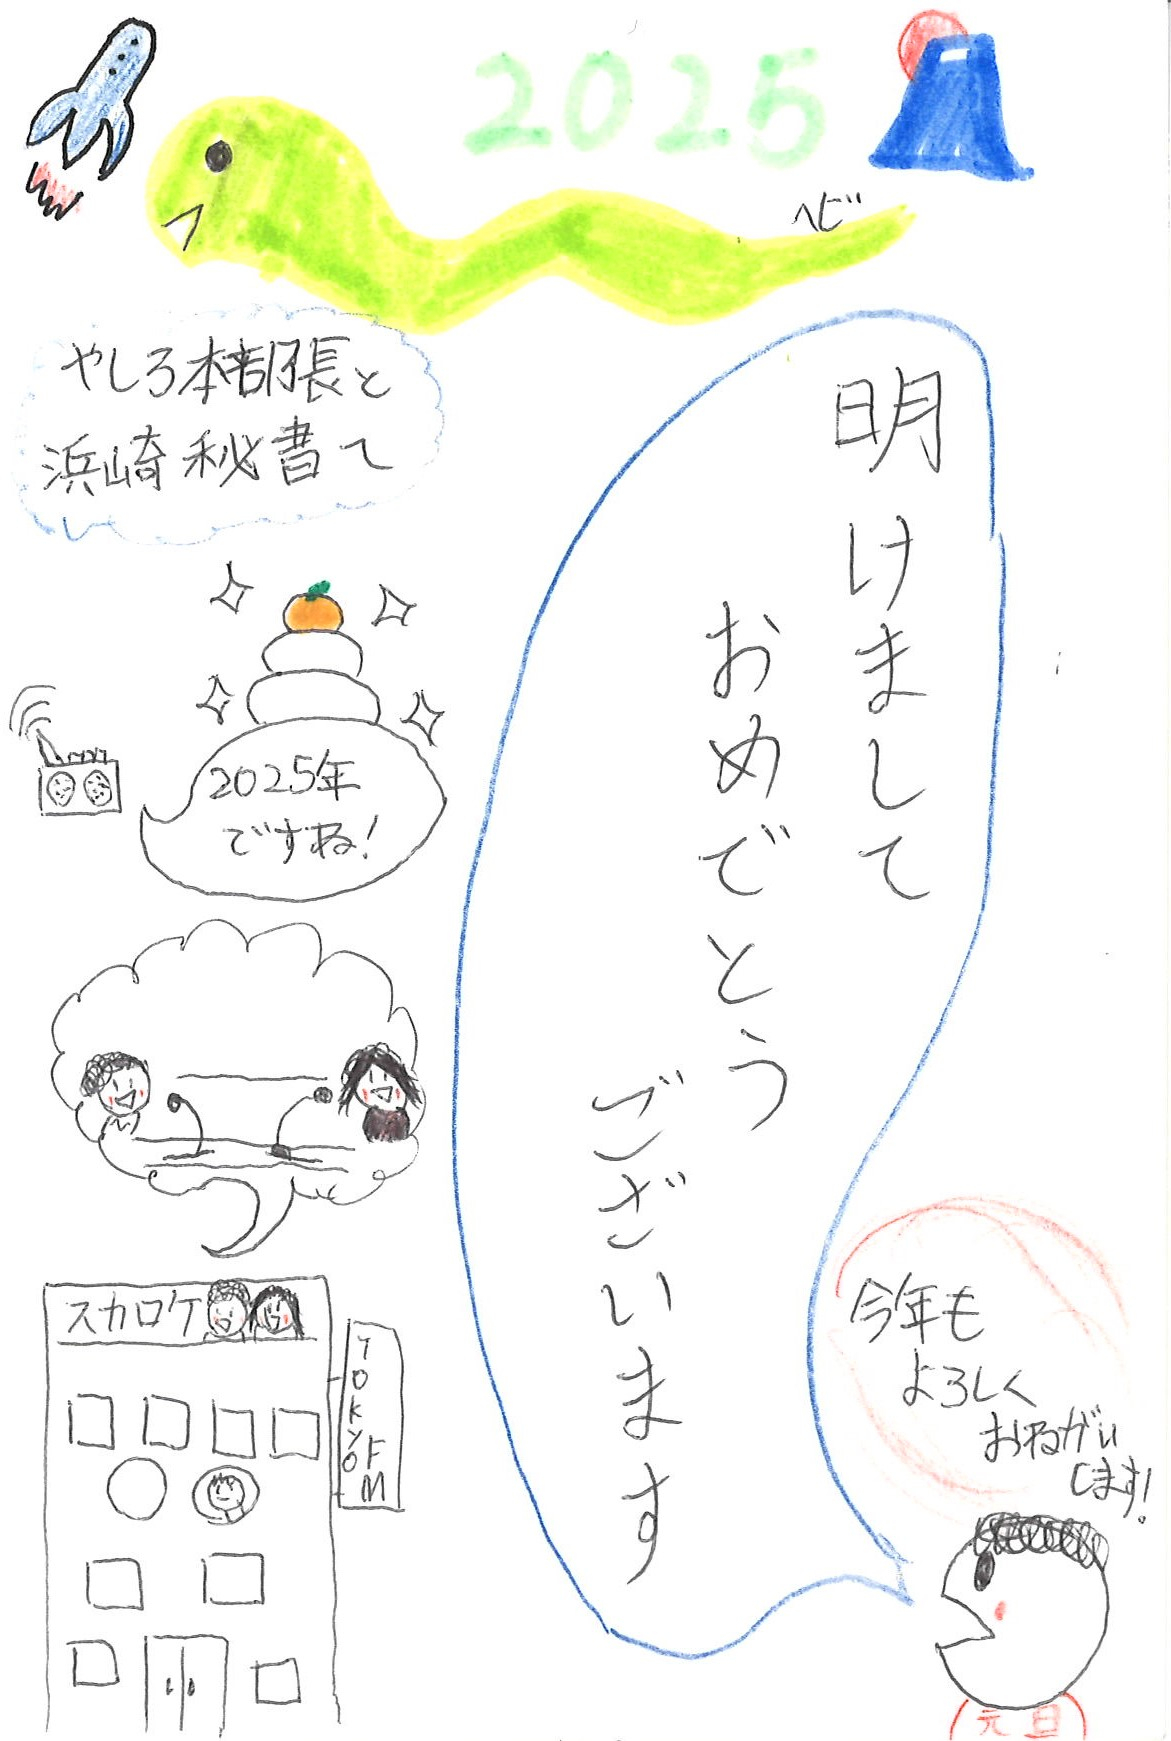 2025
ヘビ
やしろ本部長と
浜崎秘書て
明けまして
おめでとう
ございます
2025年
ですね!
スカロケ
TOKYO
FM
今年も
よろしく
おねがい
します!
元旦